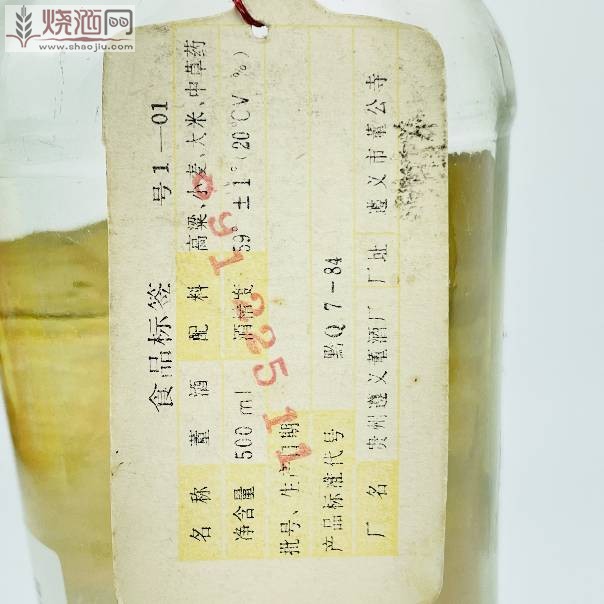 烧酒网
www.shaojiu.com
食品标签 号1—01
名称 董酒 配料 高粱、小麦、大米、中草药
净含量 500 ml 酒精度 59°±1°(20℃V %)
批号、生产日期
991225 11
产品标准代号 黔Q7-84
厂名 贵州遵义董酒厂 厂址 遵义市董公寺